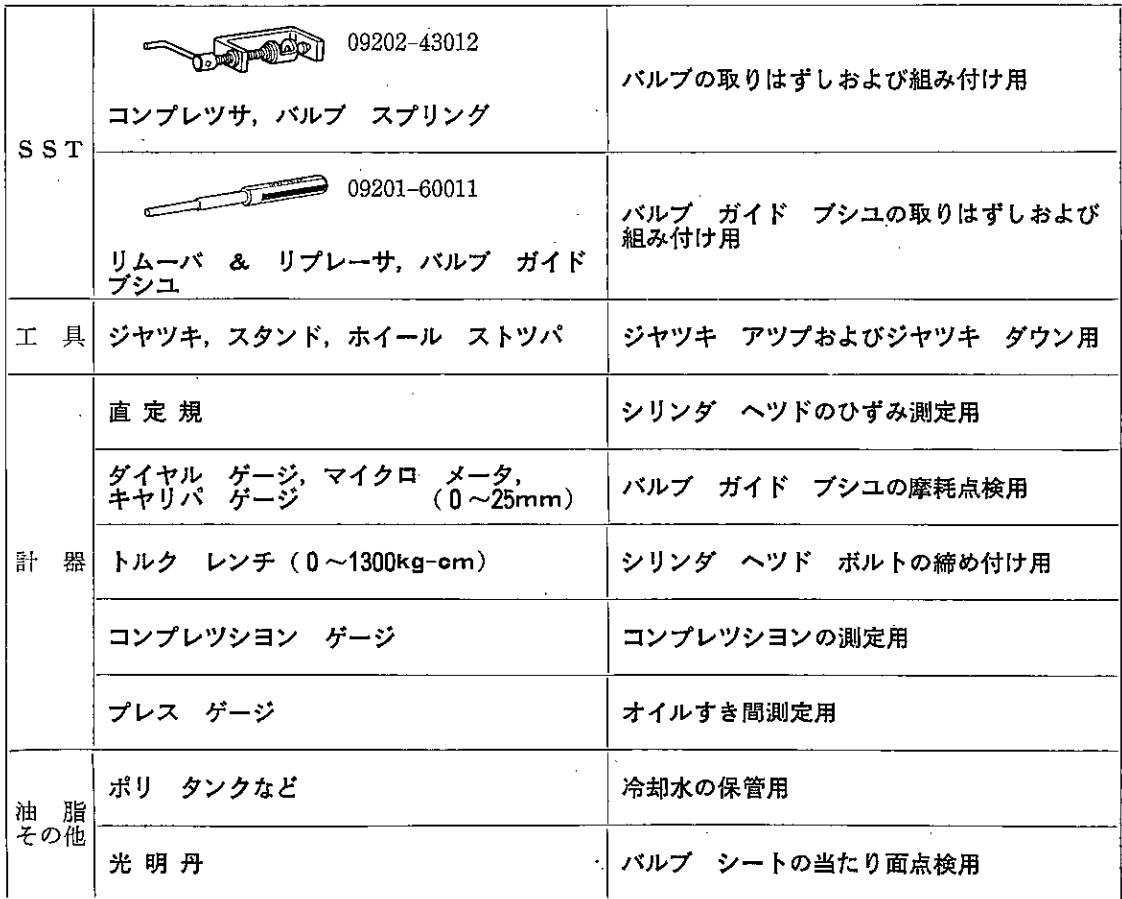 SST
09202-43012
コンプレツサ，バルブ　スプリング
バルブの取りはずしおよび組み付け用
09201-60011
リムーバ　&　リプレーサ，バルブ　ガイド
ブシユ
バルブ　ガイド　ブシユの取りはずしおよび
組み付け用
工　具
ジヤツキ，スタンド，ホイール　ストツパ
ジヤツキ　アツプおよびジヤツキ　ダウン用
計　器
直 定 規
シリンダ　ヘツドのひずみ測定用
ダイヤル　ゲージ，マイクロ　メータ，
キヤリパ　ゲージ　（0～25mm）
バルブ　ガイド　ブシユの摩耗点検用
トルク　レンチ（0～1300kg-cm）
シリンダ　ヘツド　ボルトの締め付け用
コンプレツシヨン　ゲージ
コンプレツシヨンの測定用
プレス　ゲージ
オイルすき間測定用
油　脂
その他
ポリ　タンクなど
冷却水の保管用
光 明 丹
バルブ　シートの当たり面点検用